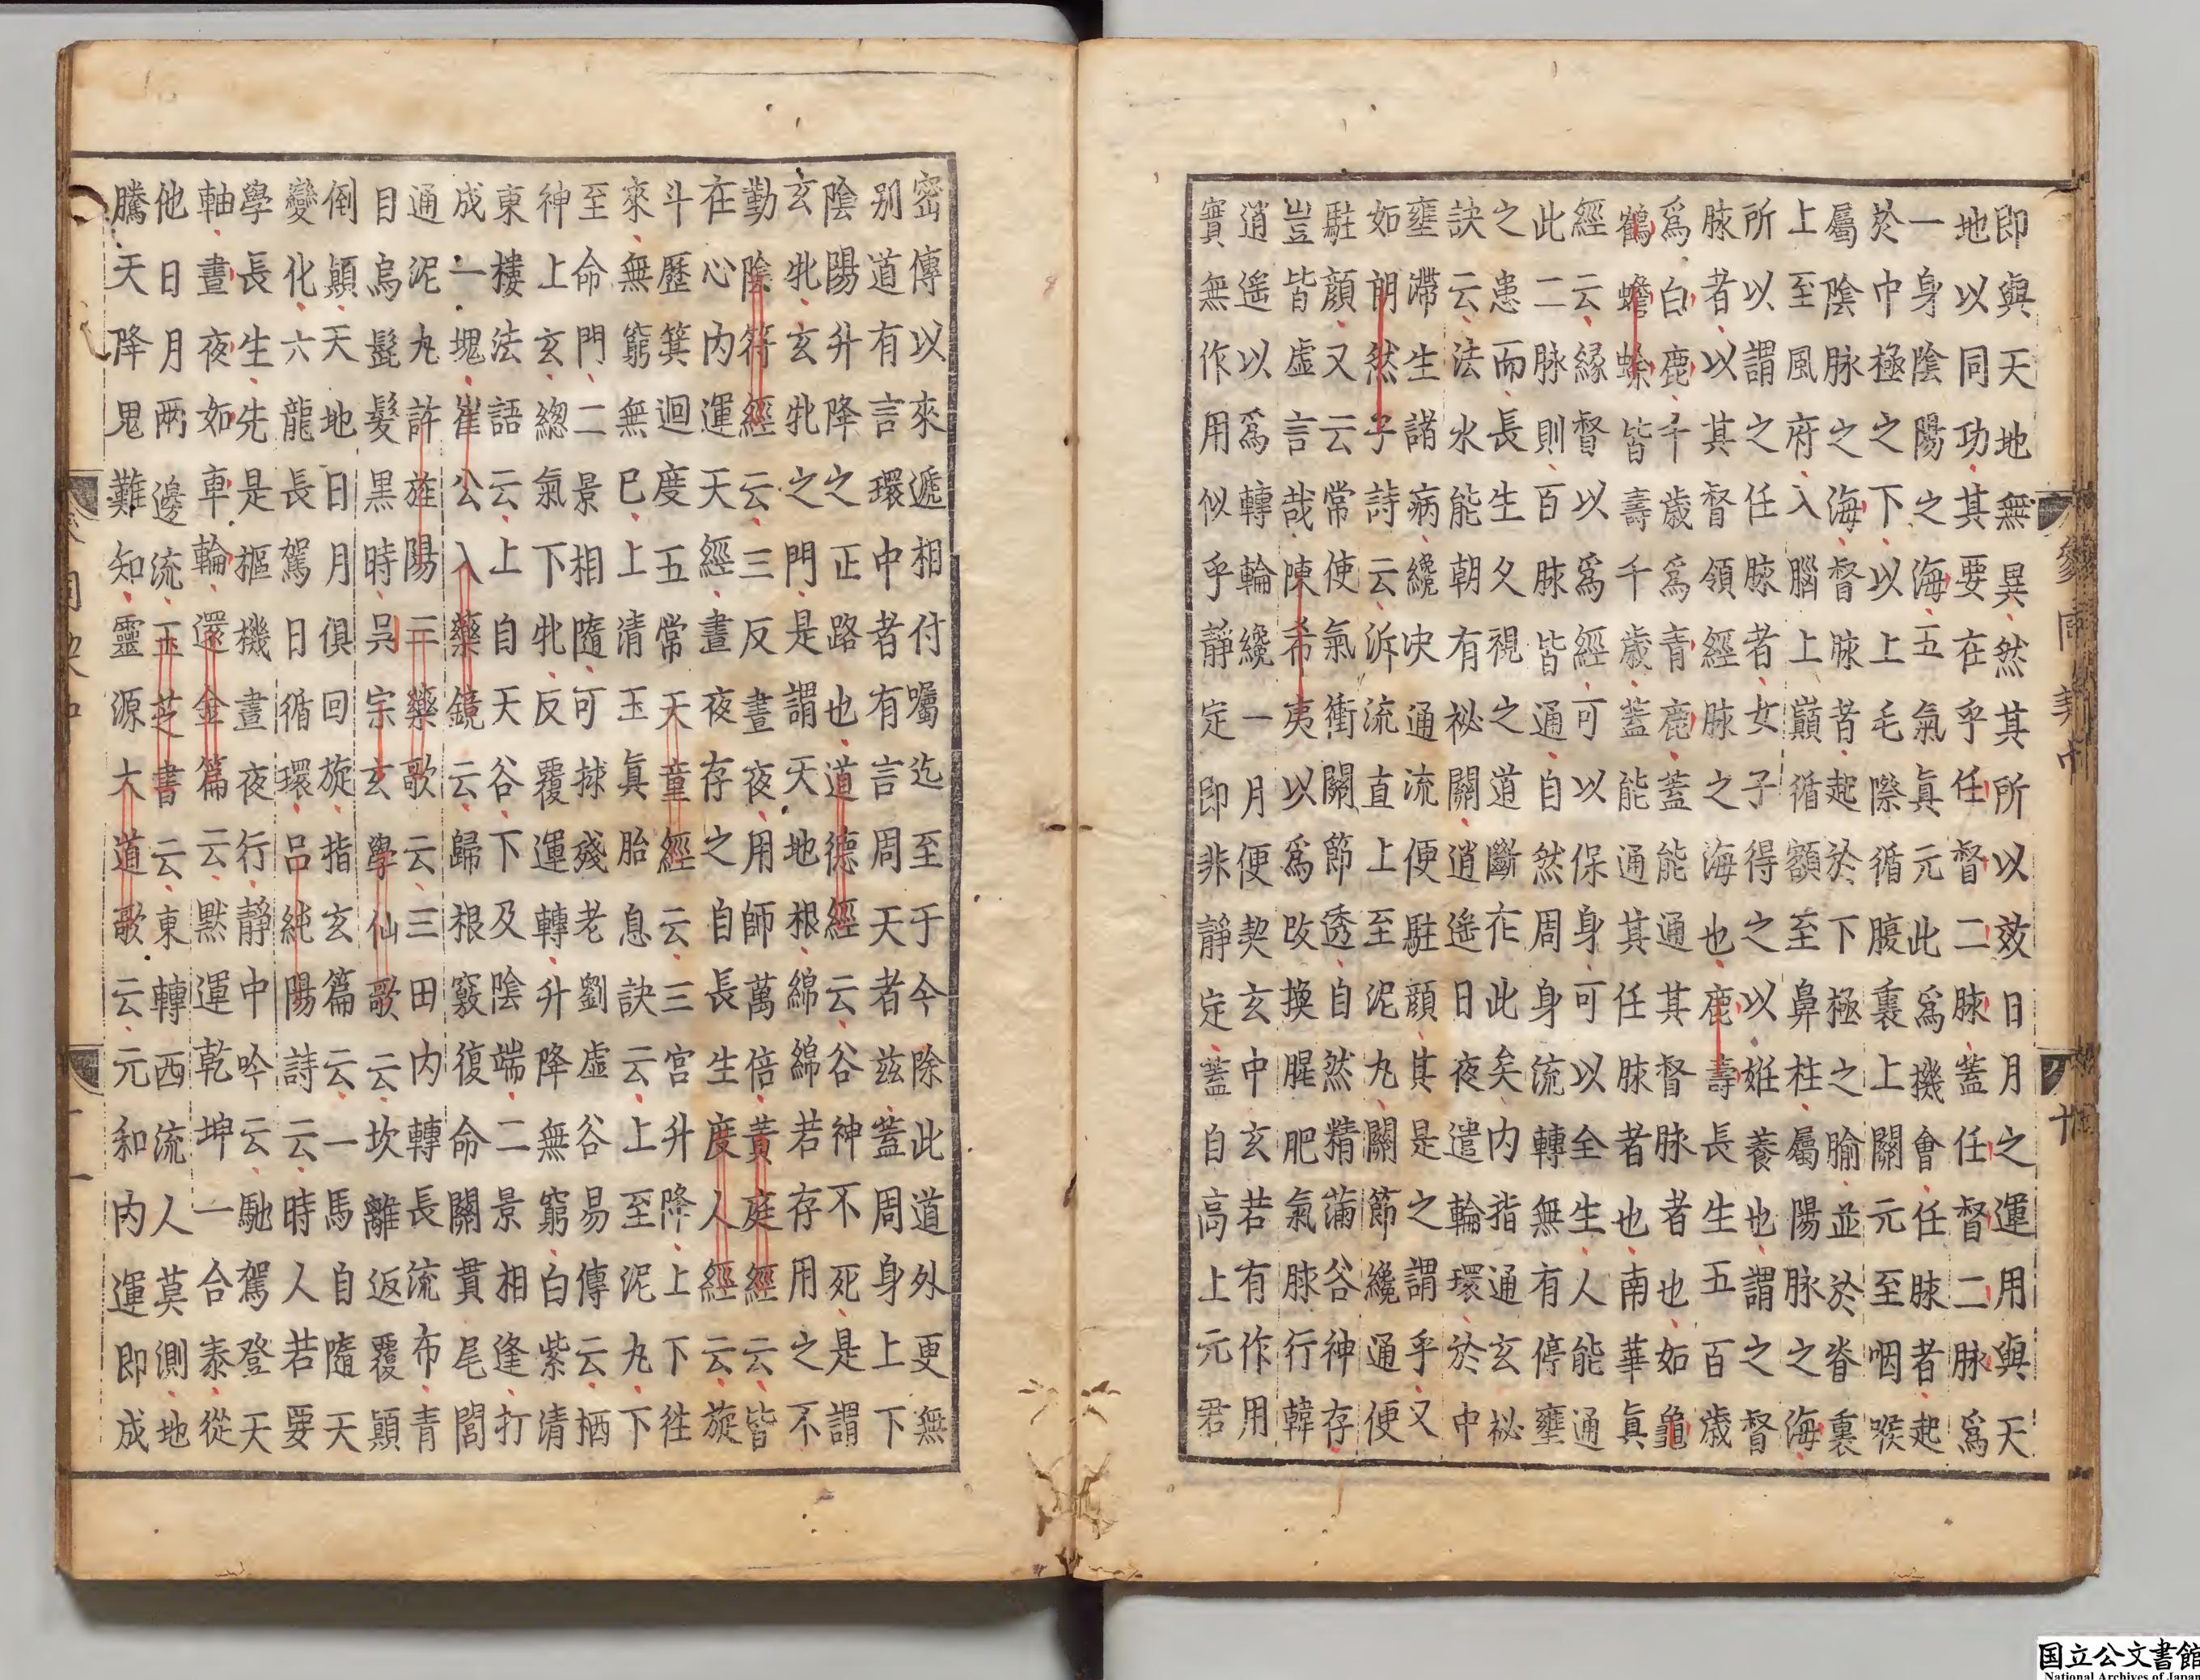 即與天地無異然其所以效日月之運用與天
地以同功其要在乎任督二脉蓋任督二脉爲
一身陰陽之海五氣眞元此爲機會任脉者起
於中極之下以上毛際循腹裏上關元至咽喉
屬陰脉之海督脉者起於下極之腧並於脊裏
上至風府入腦上巔循額至鼻柱屬陽脉之海
所以謂之任脉者女子得之以姙養也謂之督
脉者以其督領經脉之海也鹿壽長生五百歲
爲白鹿千歲爲青鹿蓋能通其督脉者也如龜
鶴蟾蜍皆壽千歲蓋能通其任脉者也南華眞
經云緣督以爲經可以保身可以全生人能通
此二脉則百脉皆通自然周身流轉無有停壅
之患而長生久視之道斷在此矣内指通玄祕
訣云法水能朝有祕關逍遙日夜遣輪環於中
壅滯生諸病纔決通流便駐顏其是之謂乎又
如朗然子詩云泝流直上至泥丸關節纔通便
駐顏又云常使氣衝關節透自然精滿谷神存
豈皆虛言哉陳希夷以爲改換腥肥氣脉行韓
逍遙以爲轉輪纔一月便契玄中玄若有作用
實無作用似乎靜定卽非靜定蓋自高上元君
密傳以來遞相付囑迄至于今除此道外更無
别道有言環中者有言周天者兹蓋周身上下
陰陽升降之正路也道德經云谷神不死是謂
玄牝玄牝之門是謂天地根綿綿若存用之不
勤陰符經云三反晝夜用師萬倍黃庭經云皆
在心内運天經晝夜存之自長生度人經云旋
斗歷箕迴度五常天童經云三宮升降上下徃
來無窮無已上清玉眞胎息訣云上至泥丸下
至命門二景相隨可捄殘老劉虛谷易傳云栖
神上玄總氣下牝反覆運轉升降無窮白紫清
東樓法語云上自天谷下及陰端二景相逢打
成一塊崔公入藥鏡云歸根竅復命關貫尾閭
通泥丸許旌陽三藥歌云三田内轉長流布青
目烏髭髮黒時吳宗玄學仙歌云坎離返覆顚
倒顚天地日月俱回旋指玄篇云一馬自隨天
變化六龍長駕日循環呂純陽詩云時人若要
學長生先是樞機晝夜行靜中吟云馳駕登天
軸晝夜如車輪還金篇云默運乾坤一合泰從
他日月兩邊流玉芝書云東轉西流人莫測地
騰天降鬼難知靈源大道歌云元和内運卽成
国立公文書館
National Archives of Japan